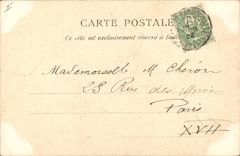 CARTE POSTALE
Ce côté est exclusivement réservé à
Mademoiselle M Chéron
23 Rue des
Paris
XVII